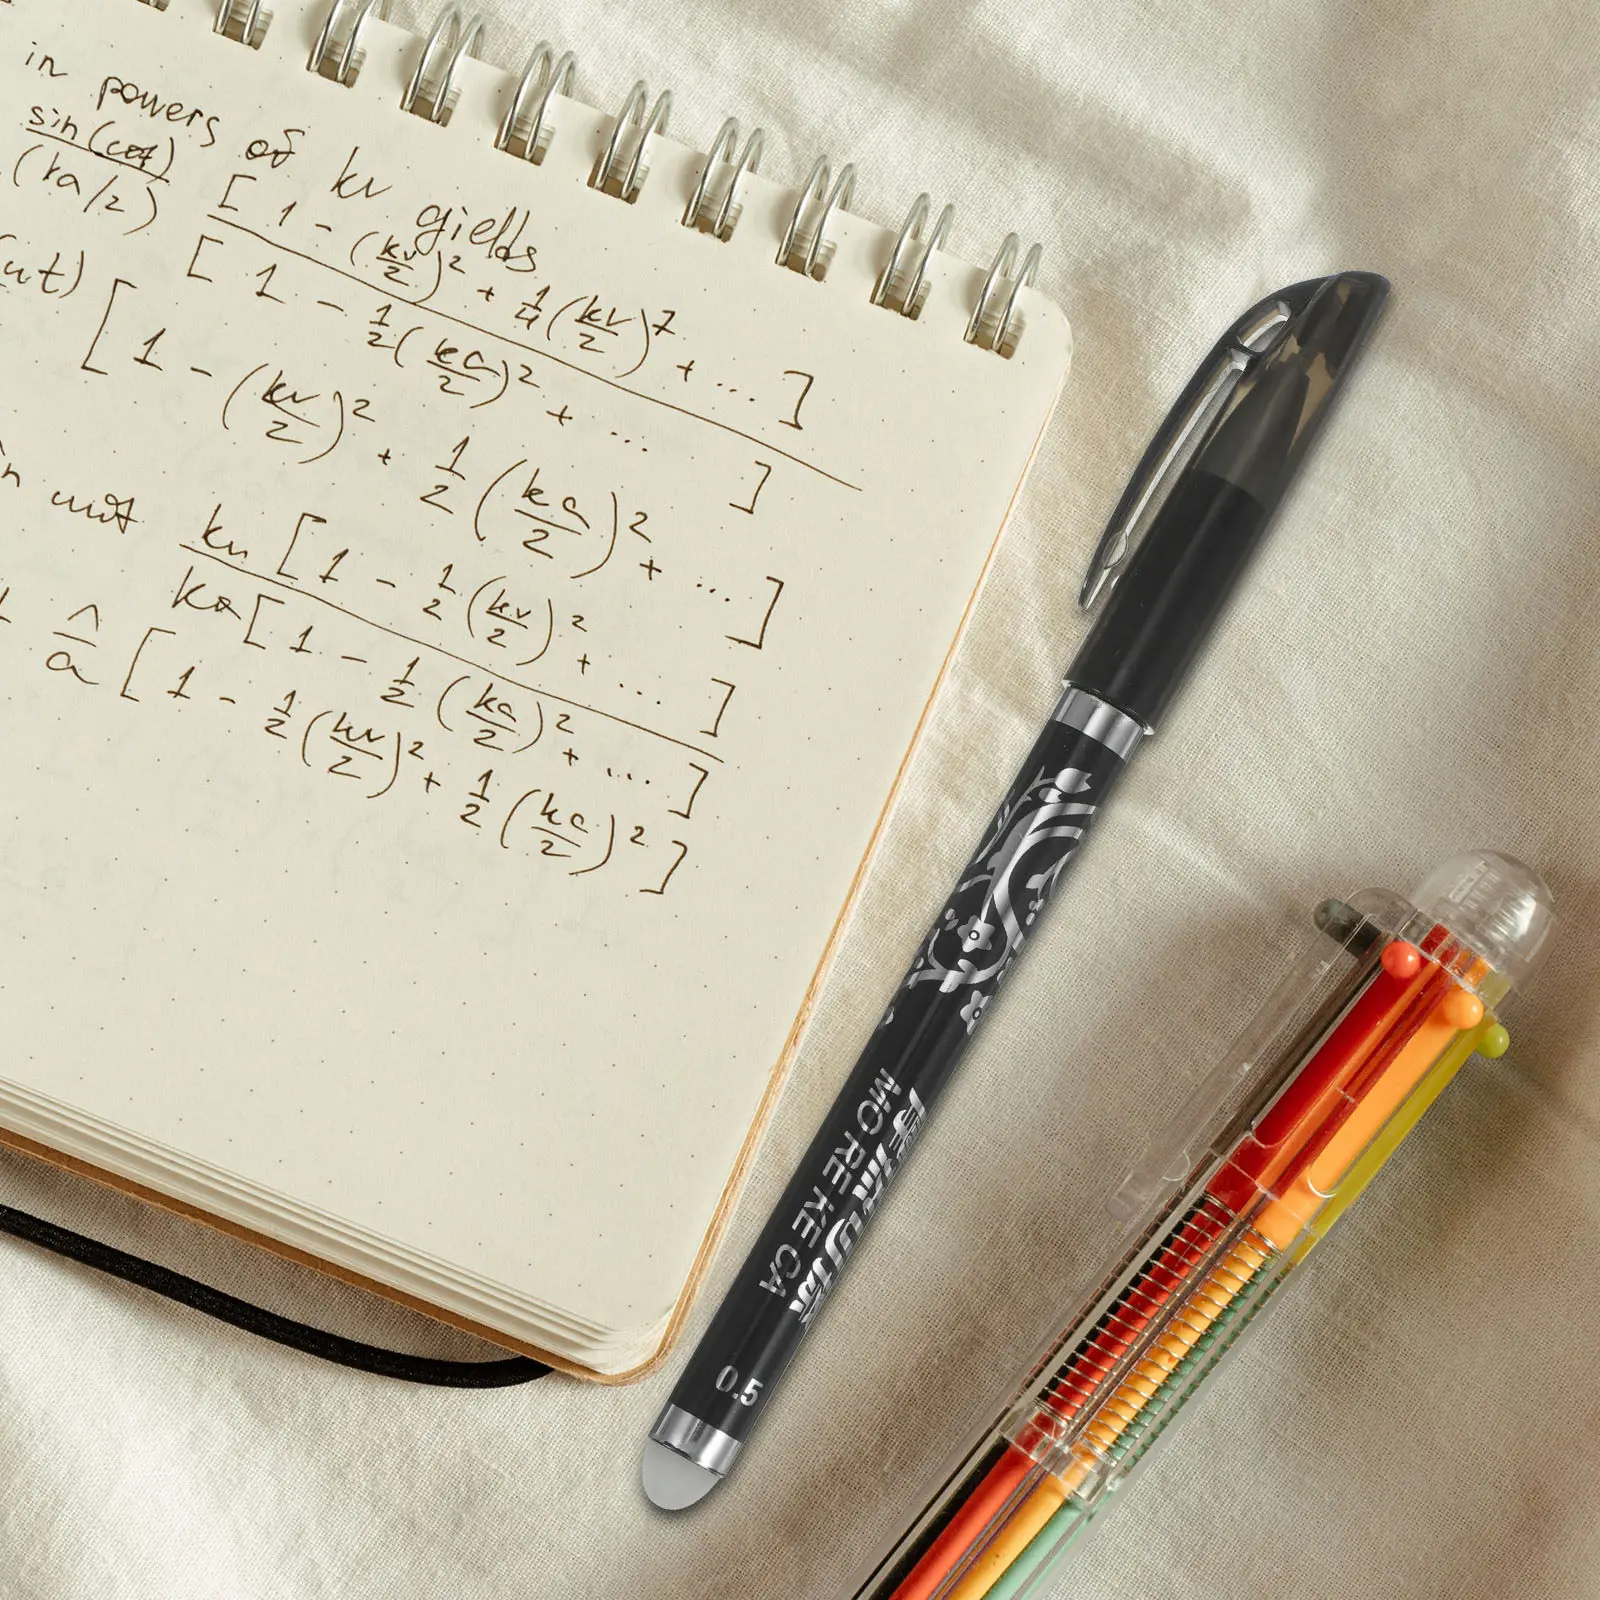 in powers of kv yields
sin(cot)
(ka/2)
[1 - (kv/2)² + 1/4(kv/2)⁷ + ...]
[1 - 1/2(ka/2)² + ... ]
ut) [1 - (kv/2)² + 1/2(ka/2)² + ...]
kv [1 - 1/2(kv/2)² + ...]
ka [1 - 1/2(ka/2)² + ...]
a [1 - 1/2(kv/2)² + 1/2(ka/2)²]
MO RE KE CA
0.5